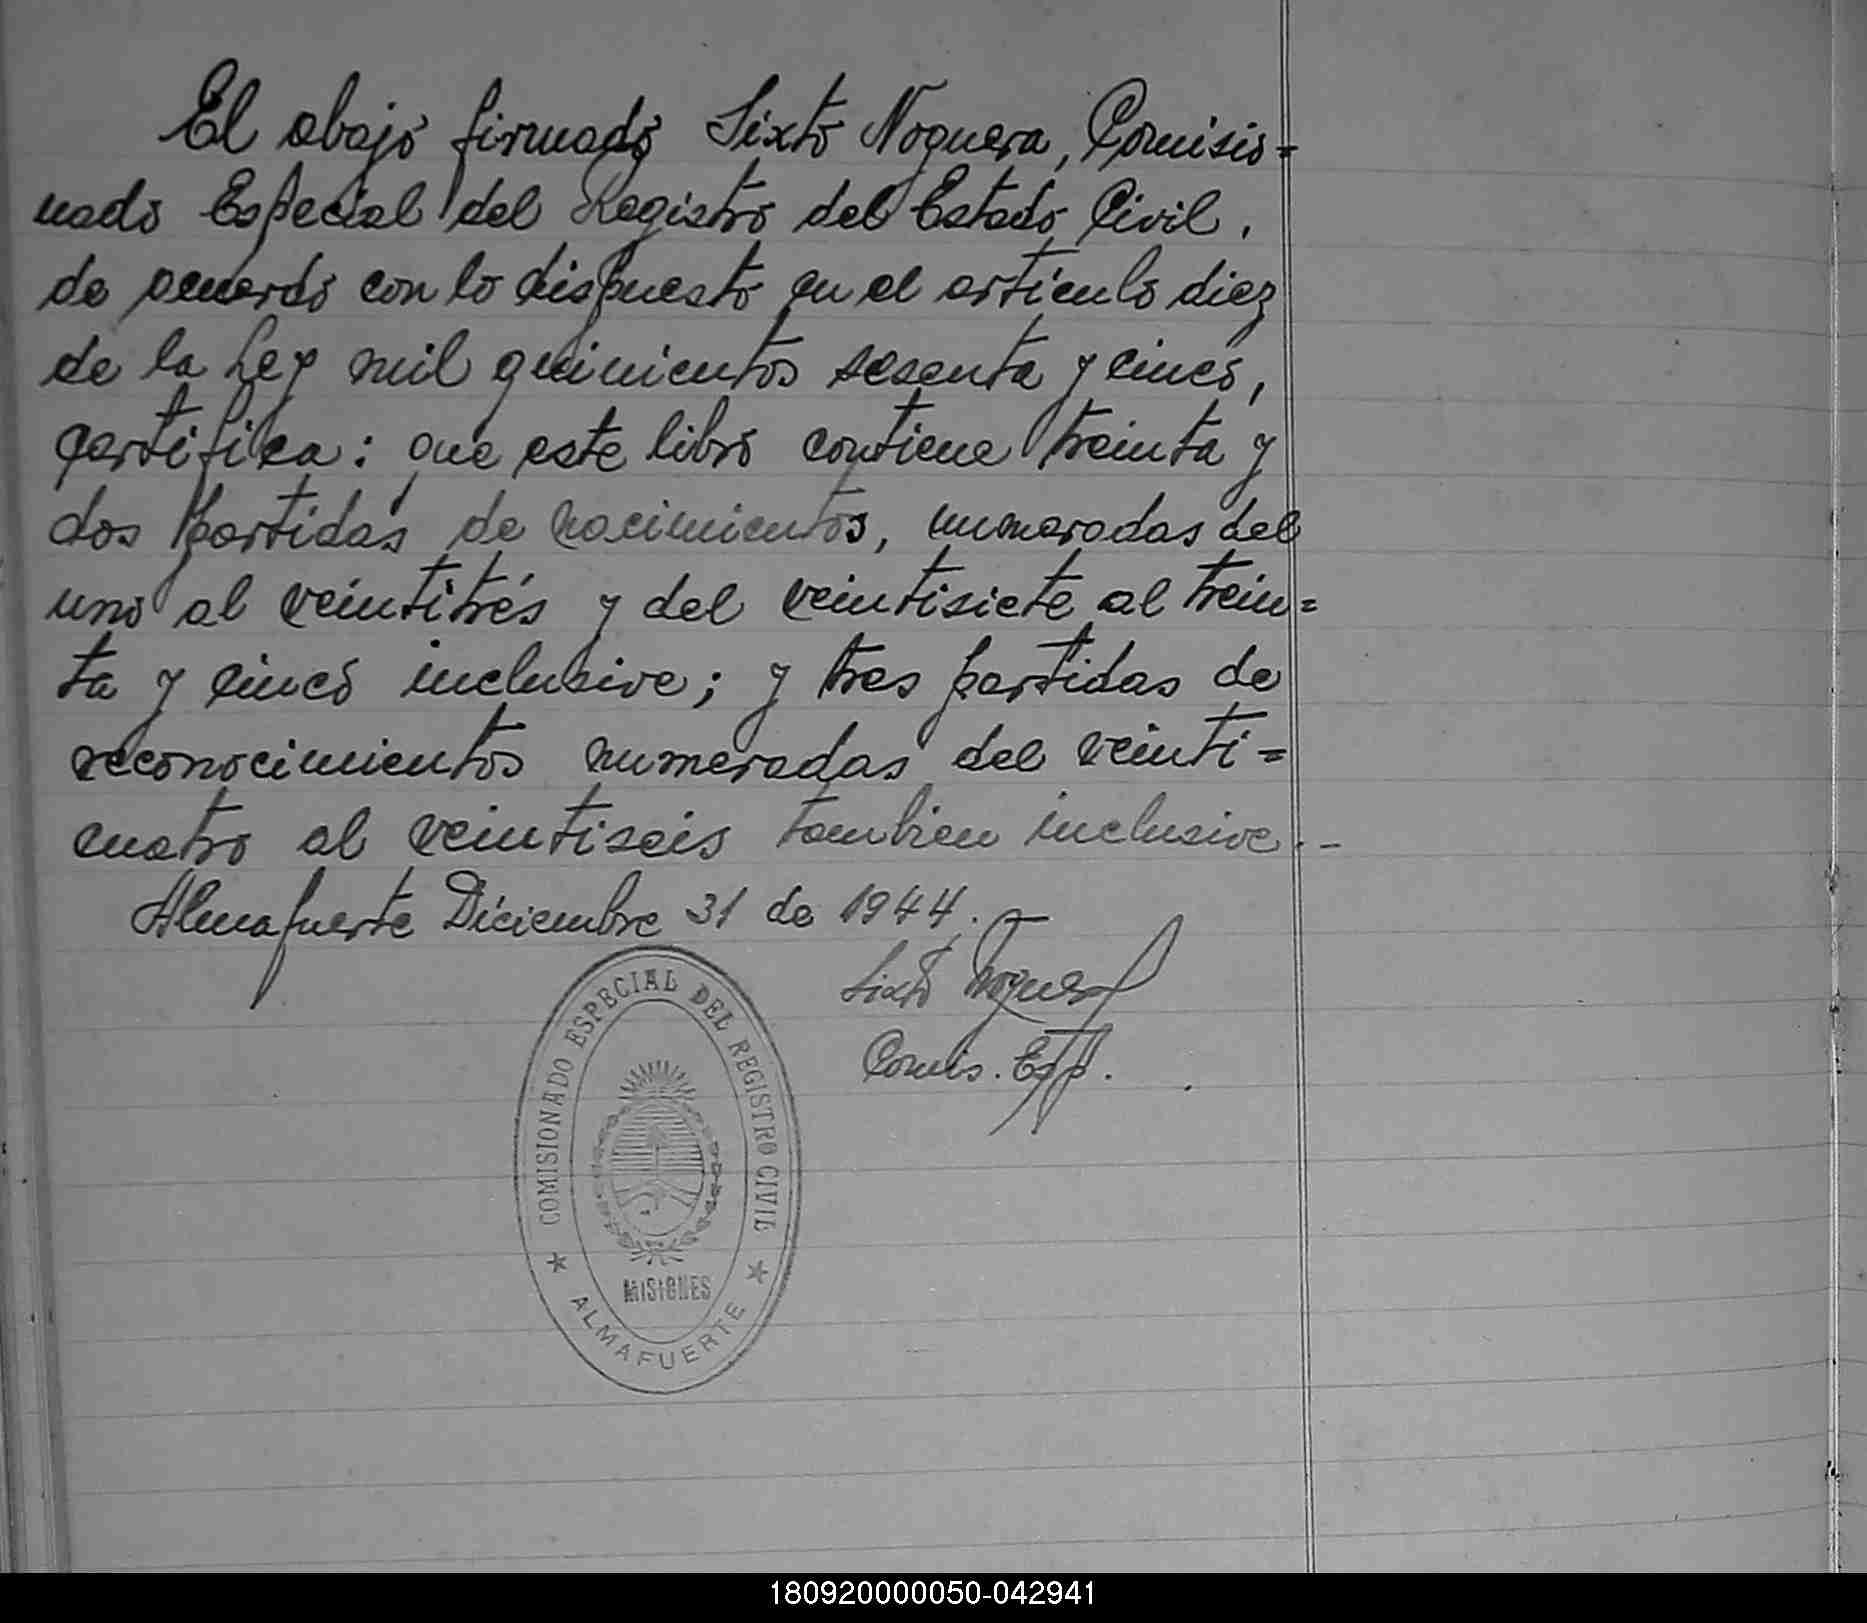 El abajo firmado Sixto Noguera, Comisio=
nado Especial del Registro del Estado Civil,
de acuerdo con lo dispuesto en el artículo diez
de la Ley mil quinientos sesenta y cinco,
certifica: que este libro contiene treinta y
dos partidas de nacimientos, numeradas del
uno al veintitrés y del veintisiete al trein=
ta y cinco inclusive; y tres partidas de
reconocimientos numeradas del veinti=
cuatro al veintiseis tambien inclusive.-
Almafuerte Diciembre 31 de 1944.
Sixto Noguera
Comis. Esp.
COMISIONADO ESPECIAL DEL REGISTRO CIVIL
MISIONES
★ ALMAFUERTE ★
180920000050-042941